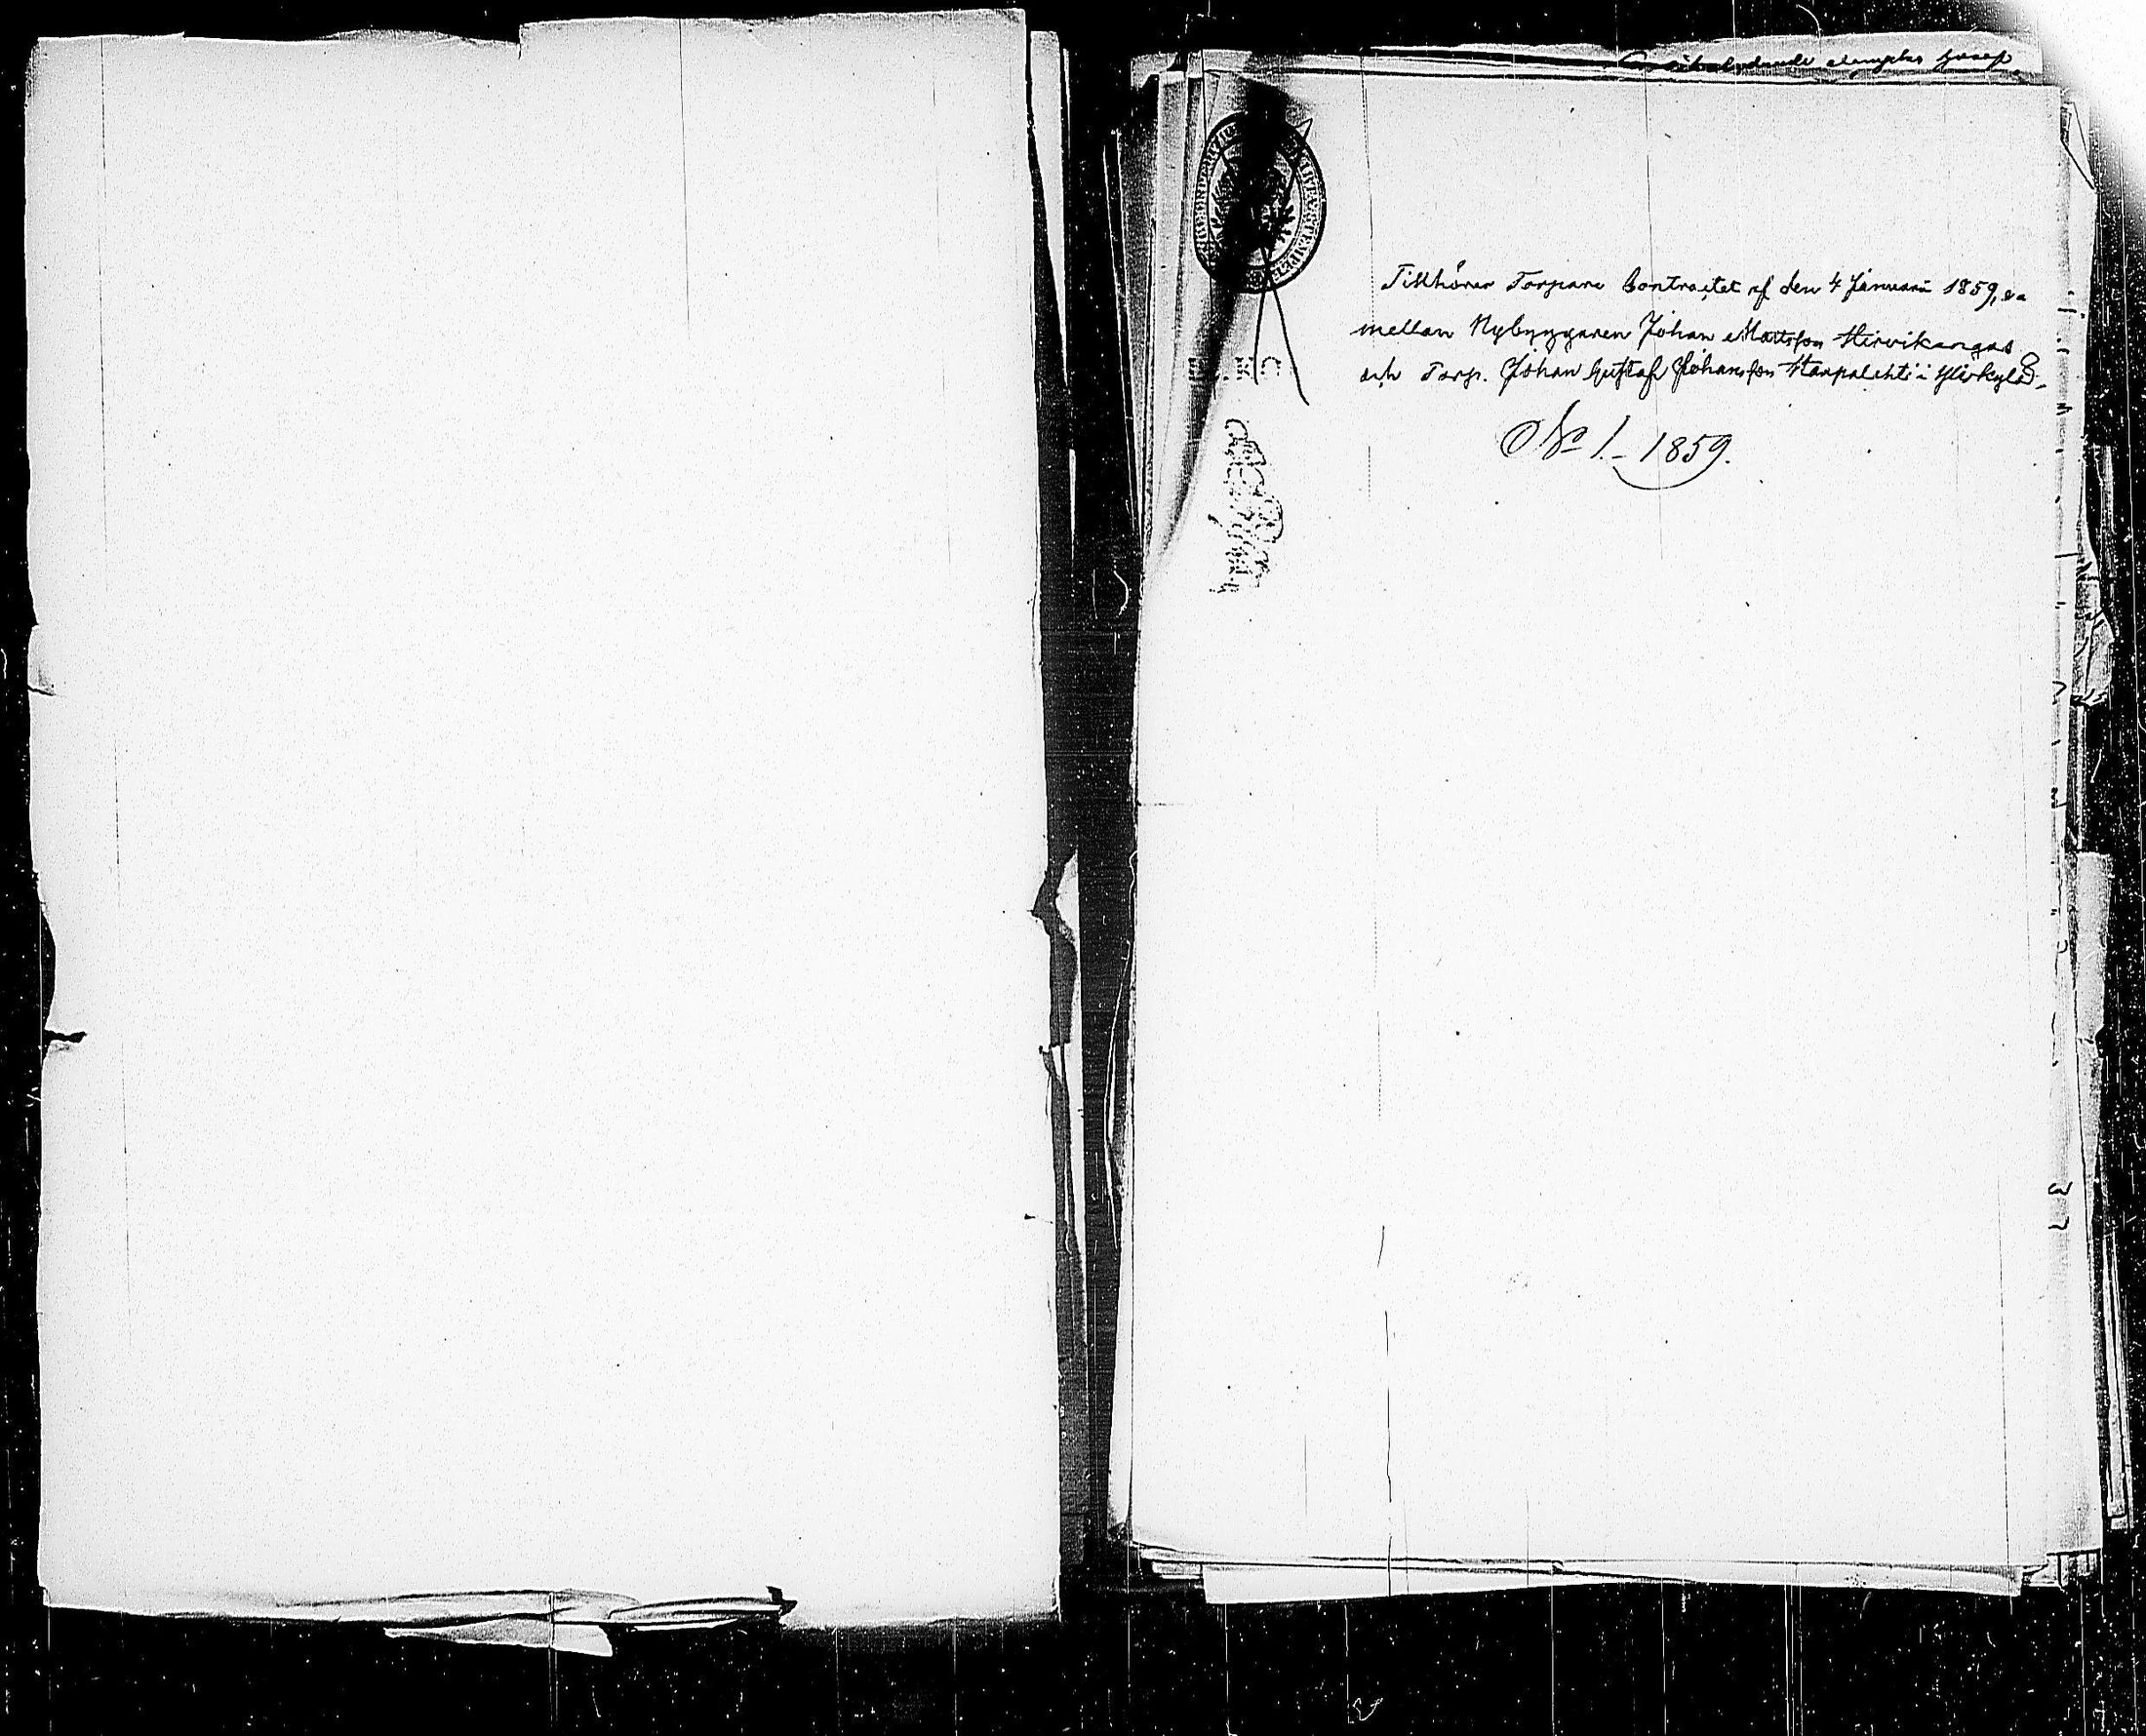 Tillhörer Torpare Contractet af den 4 Januarii 1859,
mellan Nybyggaren Johan Mattsson Hirvikangas
och Torp. Johan Gustaf Johansson Haapalehto i Ylikylä
No 1. 1859.